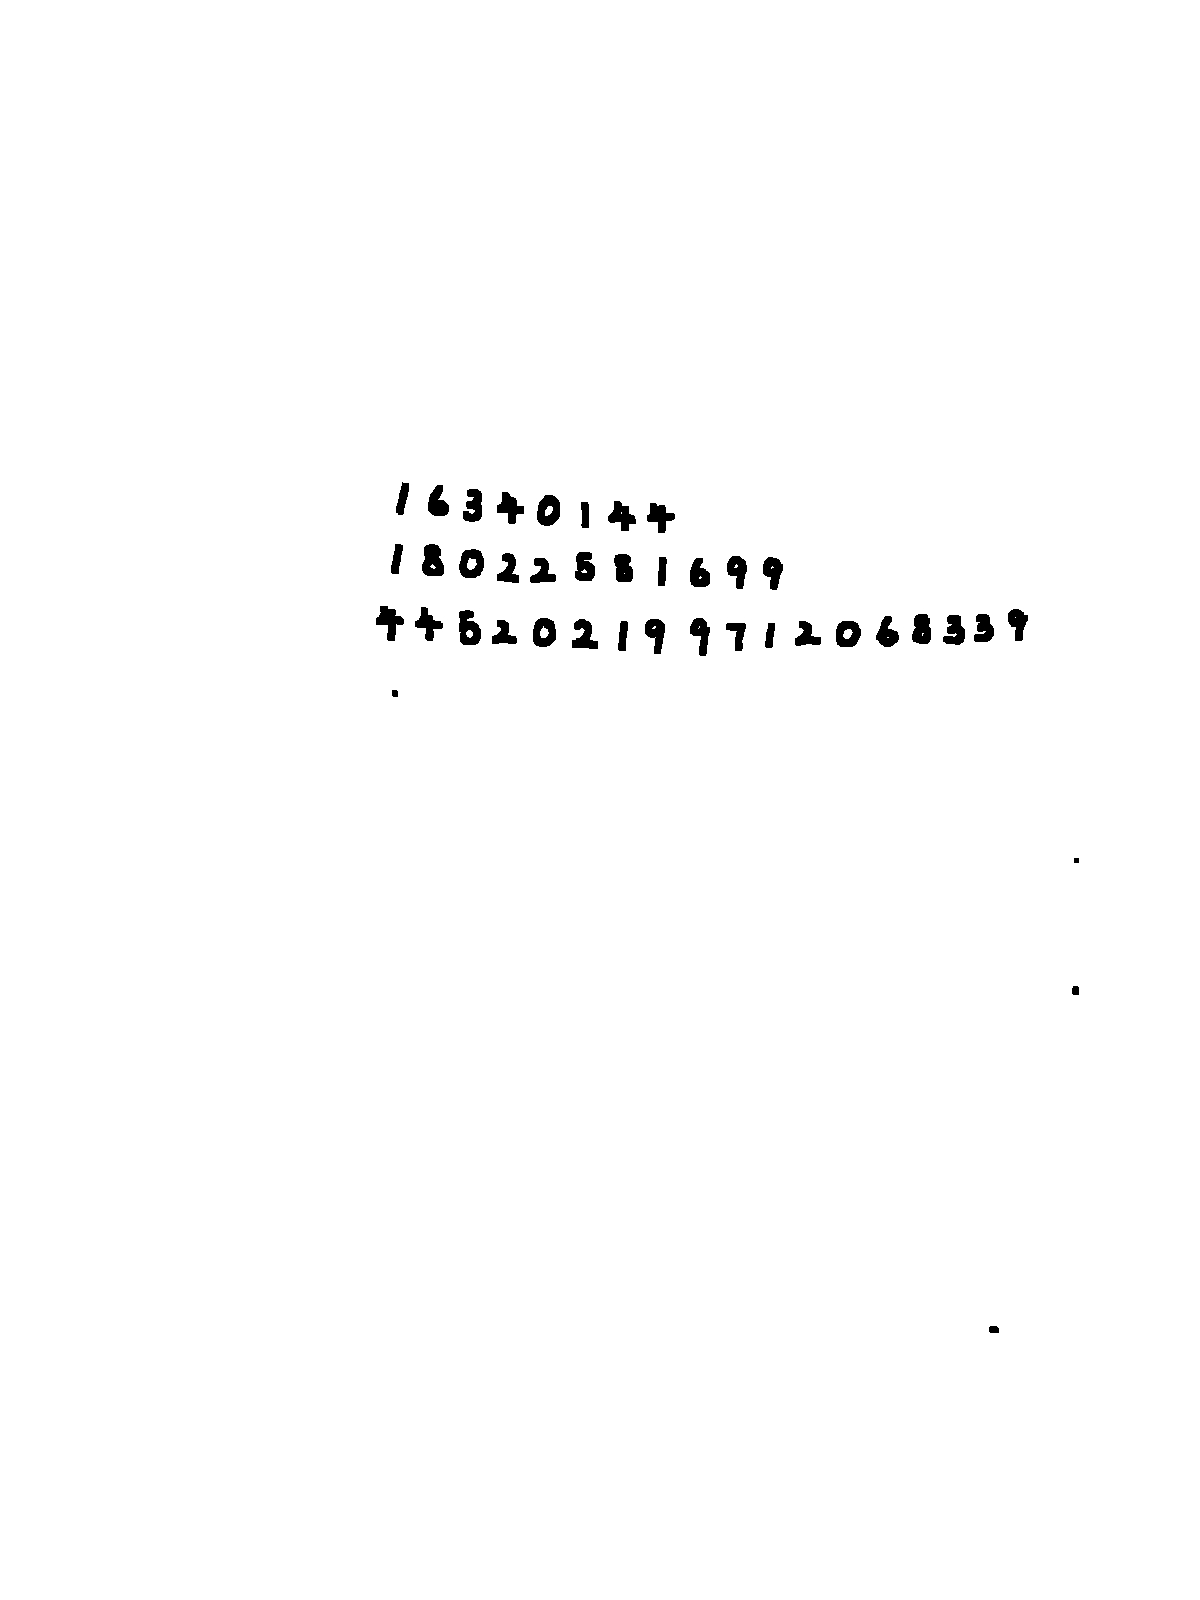 16340144
18022581699
445202199712068339